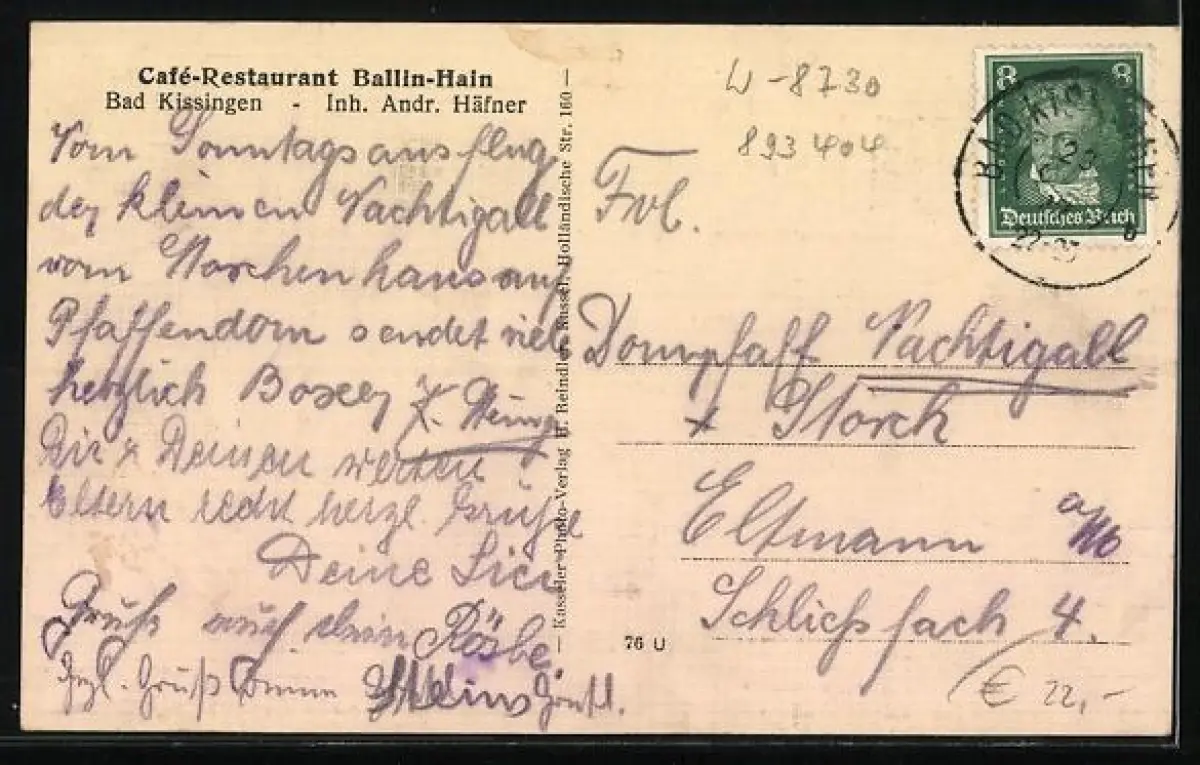 Café-Restaurant Ballin-Hain
Bad Kissingen - Inh. Andr. Häfner
Vom Sonntagsausflug
der kleinen Nachtigall
vom Storchenhaus auf
Pfaffendorn sendet viele
herzlich Boxer
Dir & Deinen werten
Eltern recht herzl. Grüße
Deine
Gruß auch dein Rösbe
Hrzl. Gruß
Kasseler-Photo-Verlag B. Reindl, Kassel, Holländische Str. 160
W-8730
893404
8 8
Deutsches Reich
BAD KISSINGEN
23
22-23
B
Frl.
Dompfaff Nachtigall
+ Storch
Eltmann a/M
Schließfach 4.
76 U
€ 22,-